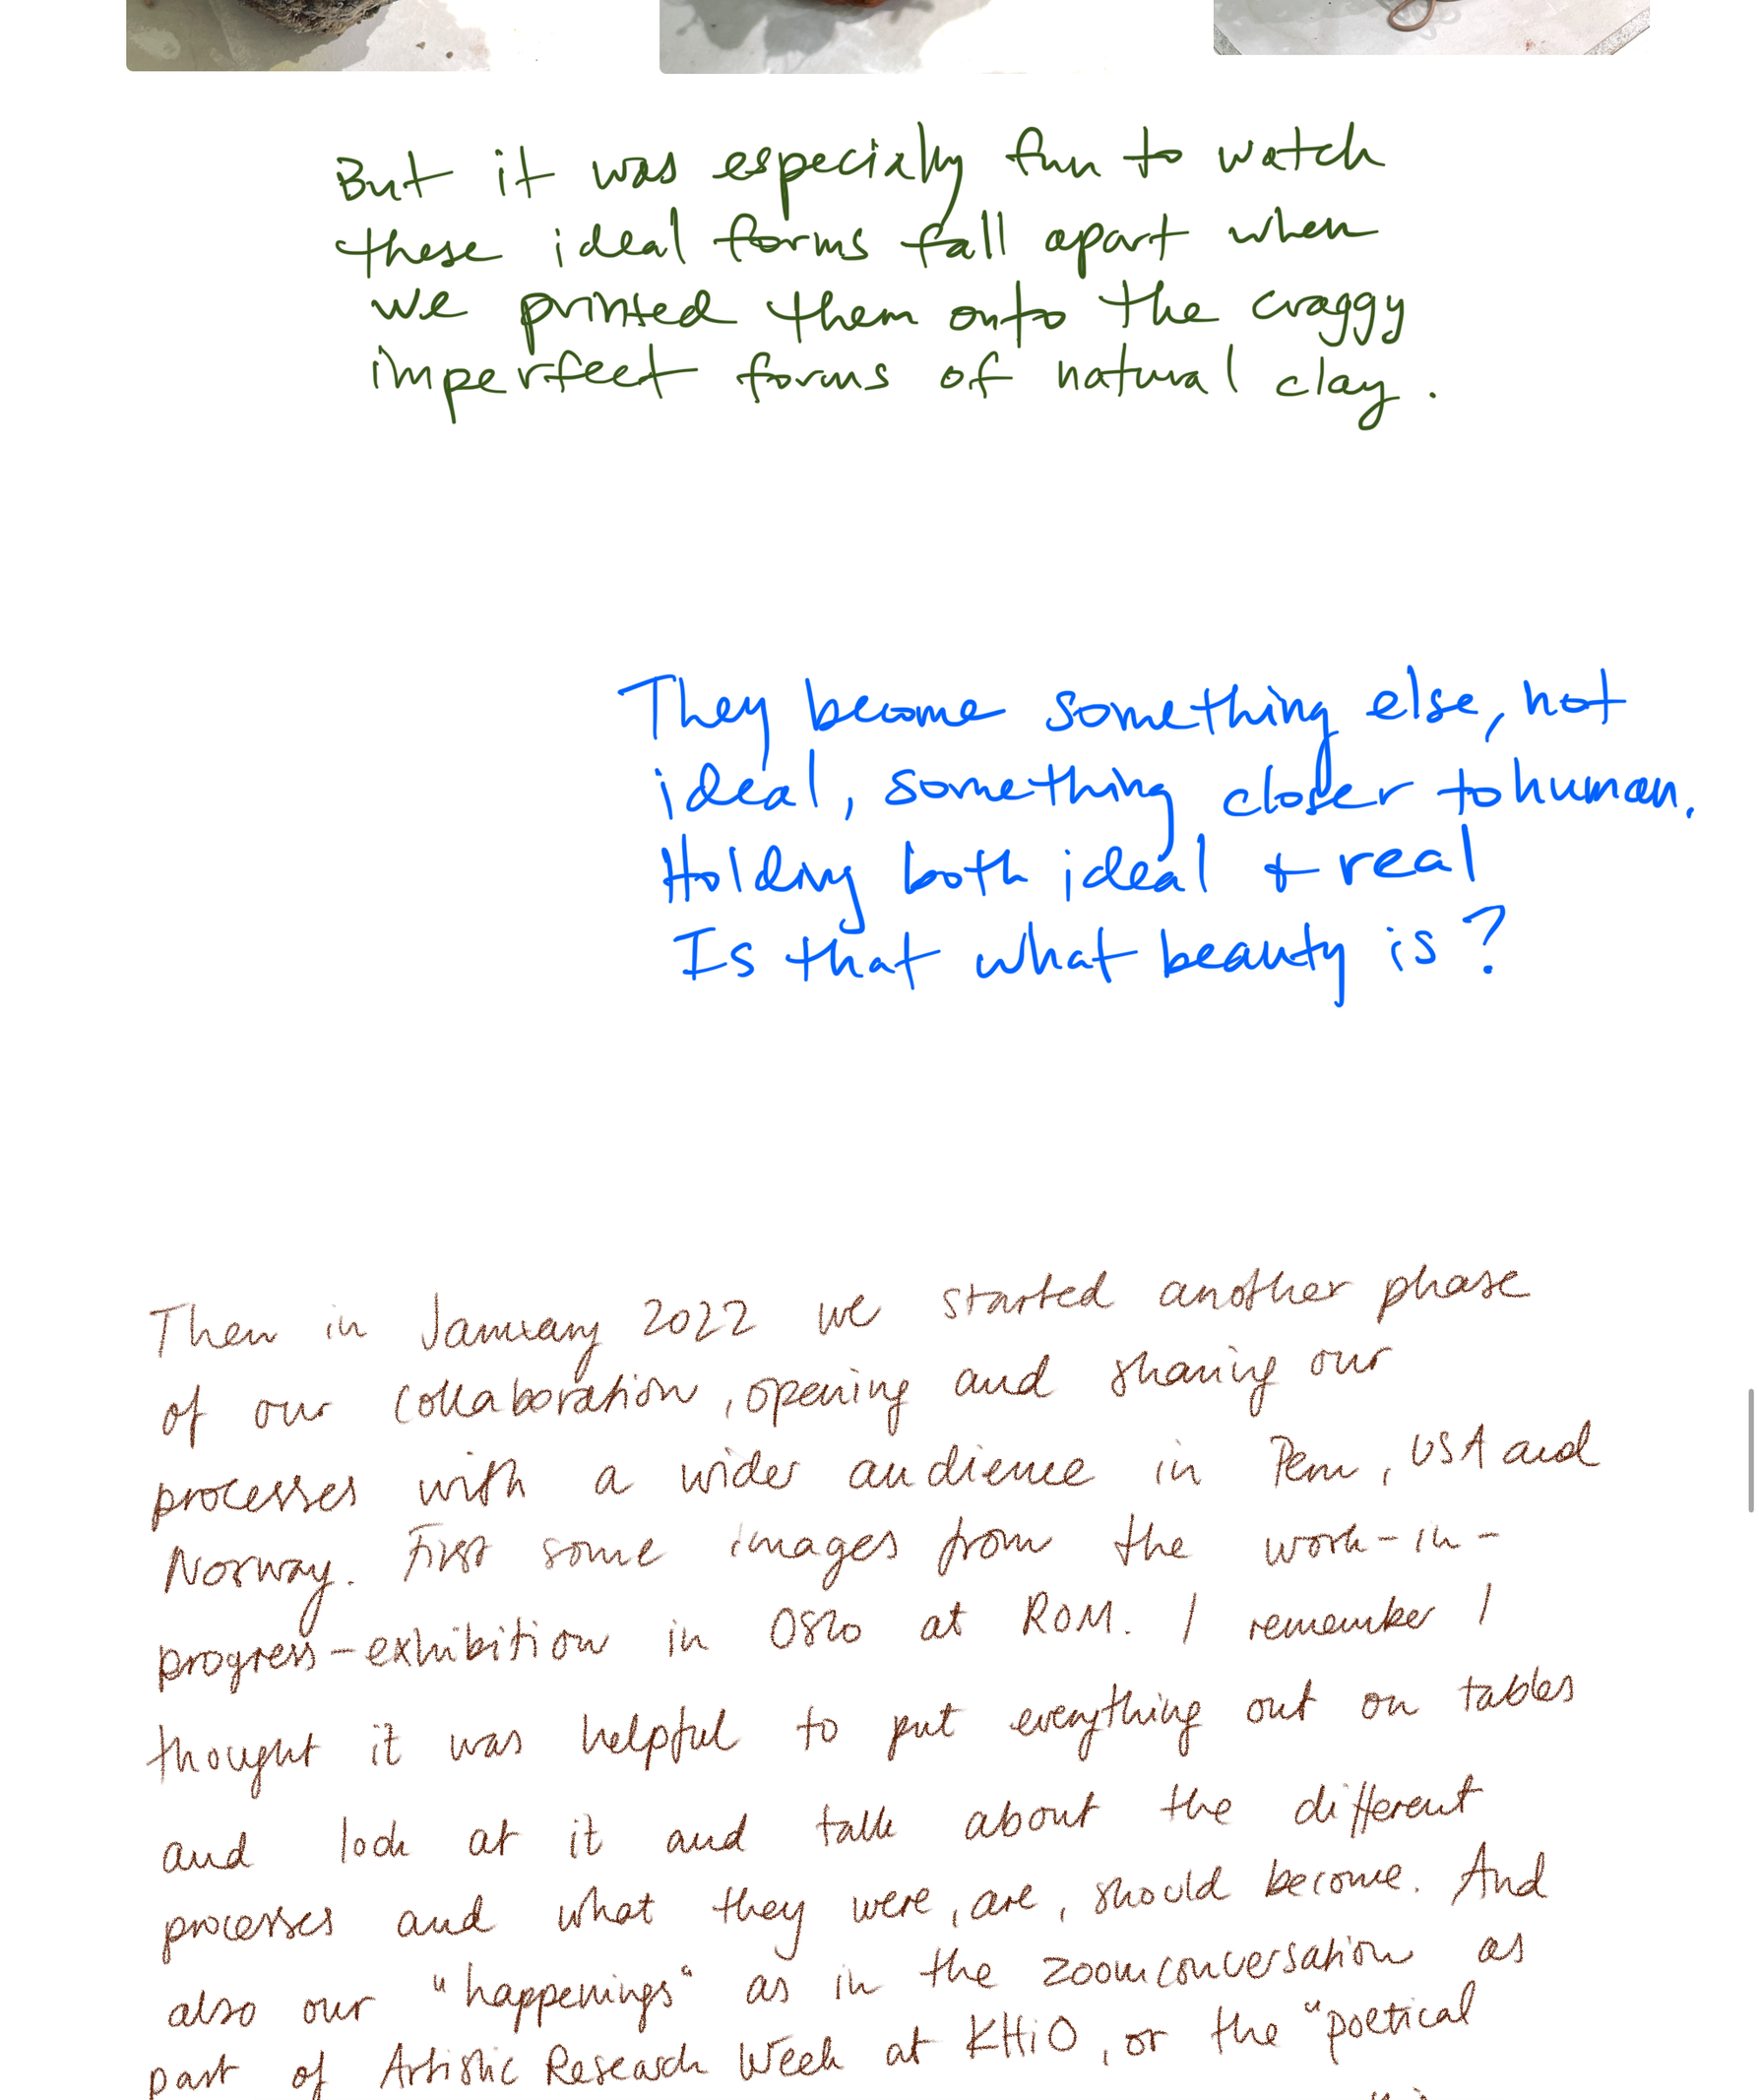 But it was especially fun to watch
these ideal forms fall apart when
we printed them onto the craggy
imperfect forms of natural clay.
They become something else, not
ideal, something closer to human.
Holding both ideal & real
Is that what beauty is?
Then in January 2022 we started another phase
of our collaboration, opening and sharing our
processes with a wider audience in Peru, USA and
Norway. First some images from the work-in-
progress-exhibition in Oslo at ROM. I remember I
thought it was helpful to put everything out on tables
and look at it and talk about the different
processes and what they were, are, should become. And
also our "happenings" as in the zoomconversation as
part of Artistic Research Week at KHiO, or the "poetical